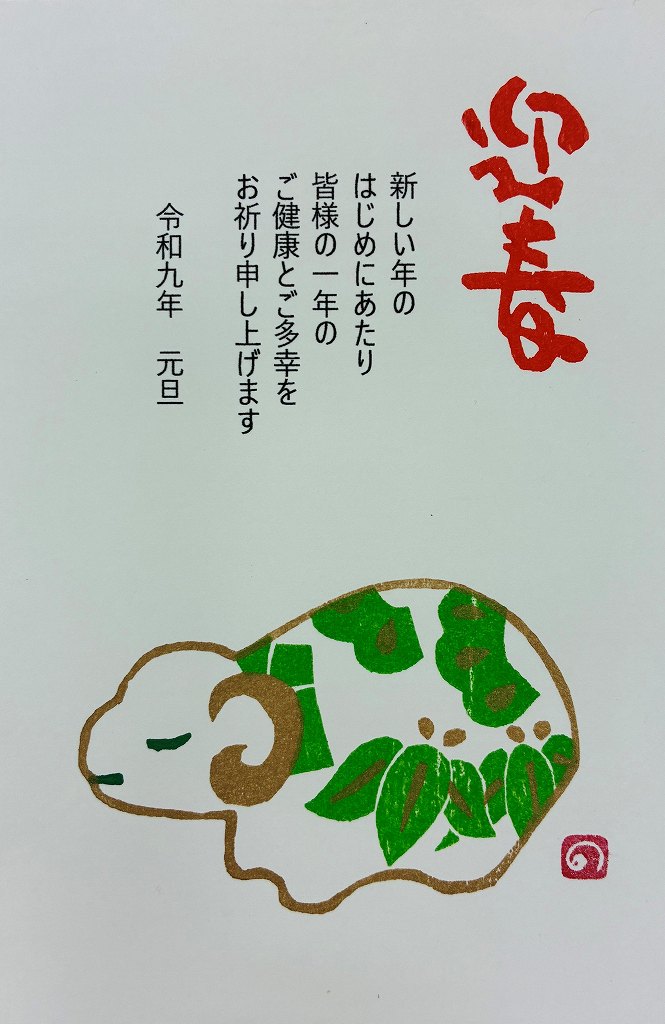 迎春
新しい年の
はじめにあたり
皆様の一年の
ご健康とご多幸を
お祈り申し上げます
令和九年　元旦